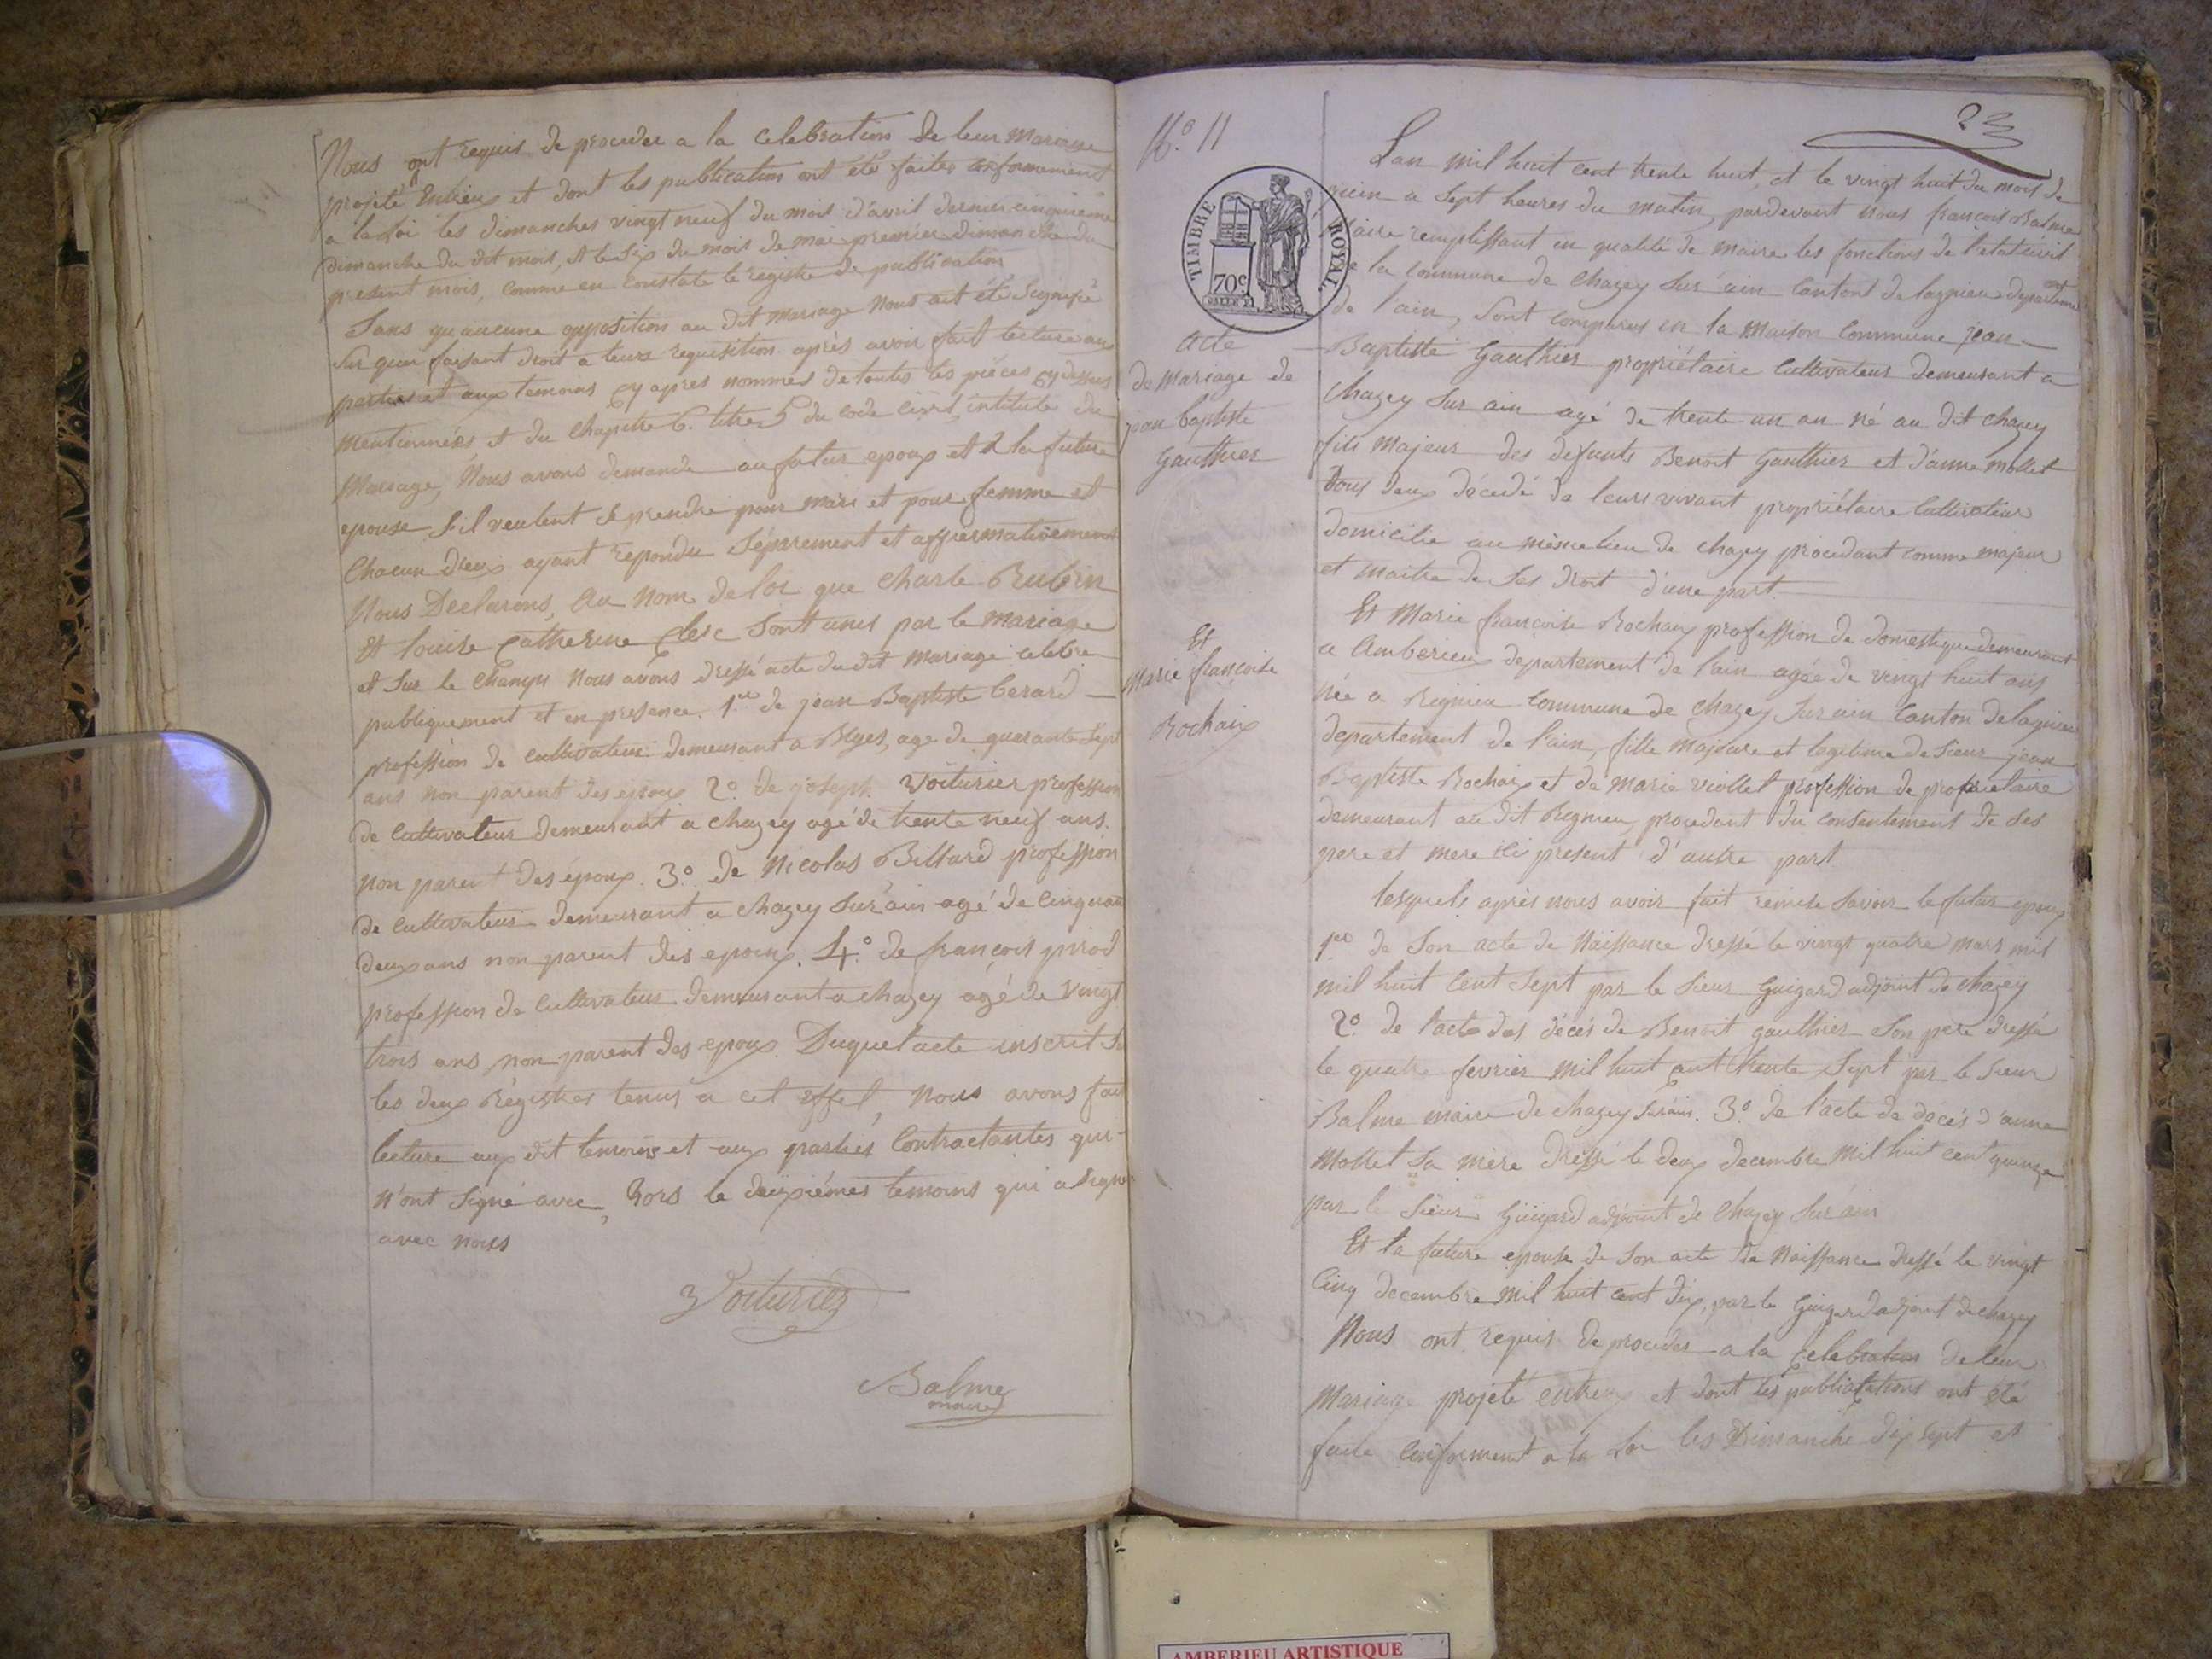 Nous ont requis de proceder a la celebration de leur Mariage
projeté Entreux et dont les publication ont été faites conformement
a la loi les dimanches vingt neuf du mois d'avril dernier cinquieme
dimanche du dit mois, et le six du mois de mai premier dimanche du
present mois, comme en constate le registre de publication
Sans qu'aucune opposition au dit mariage Nous ait été Signifié
Sur quoi faisant droit a leurs requisition après avoir fait lecture aux
parties et aux temoins cy apres nommés de toutes les pièces cy dessus
mentionnées et du chapitre 6. titre 5 du code civil, intitulé du
Mariage, Nous avons demandé au futur epoux et a la future
epouse s'il veulent se prendre pour mari et pour femme et
Chacun d'eux ayant repondu Séparement et affirmativement
Nous Declarons, au Nom de loi que Charle Rubin
Et Louise Catherine Clerc Sont unis par le mariage
et Sur le Champs Nous avons dressé acte du dit Mariage celebré
publiquement et en presence. 1er de jean Baptiste Berard
profession de cultivateur demeurant a Blyes, age de quarante Sept
ans non parent des epoux 2º. de joseph Voiturier profession
de Cultivateur demeurant a chazey agé de trente neuf ans.
non parent des époux. 3º. de Nicolas Billard profession
de cultivateur demeurant a chazey Sur ain agé de Cinquante
deux ans non parent des epoux. 4º. de françois pirod
profession de Cultivateur demeurant a chazey agé de Vingt
trois ans, non parent des epoux. Duquel acte inscrit Su
les deux Régistres tenus a cet effet, Nous avons fait
lecture aux dit temoins et aux parties Contractantes qui
N'ont Signé avec, hors le deuxièmes temoins qui a signé
avec nous
Voiturier
Balme
maire
Nº. 11
23
TIMBRE ROYAL
70c
acte
de Mariage de
jean baptiste
Gauthier
Et
Marie françoise
Rochaix
Lan mil huit cent trente huit, et le vingt huit du mois de
juin a Sept heures du matin, pardevant Nous françois Balme
Maire remplissant en qualité de Maire les fonctions de l'etat civil
de la commune de Chazey Sur ain Canton de lagnieu departement
de l'ain, Sont comparus en la Maison Commune jean
Baptiste Gauthier propriétaire Cultivateur demeurant a
Chazey Sur ain agé de trente un an né au dit Chazey
fils Majeur des defunts Benoit Gauthier et d'anne mollet
tous deux décédé de leurs vivant propriétaire Cultivateur
domicilie au même lieu de chazey procedant comme majeur
et maitre de Ses droit d'une part.
Et Marie françoise Rochaix profession de domestique demeurant
a Amberieu departement de l'ain agée de vingt huit ans
née a Rignieu Commune de Chazey Sur ain Canton de lagnieu
departement de l'ain, fille Majeure et legitime de Sieur jean
Baptiste Rochaix et de Marie viollet profession de propriétaire
demeurant au dit Rignieu, procedant du consentement de Ses
pere et mere ici present d'autre part
lesquels après nous avoir fait remise Savoir le futur epoux
1er de Son acte de Naissance dressé le vingt quatre mars mil
mil huit Cent Sept par le Sieur Guigard adjoint de chazey
2º. de l'acte des décès de Benoit gauthier Son pere dressé
le quatre fevrier mil huit cent trente Sept par le Sieur
Balme maire de chazey Sur ain. 3º. de l'acte de décès d'anne
Mollet Sa mère dressé le deux decembre mil huit cent quinze
par le Sieur Guigard adjoint de Chazey Sur ain
Et la future epouse de Son acte de Naissance dressé le vingt
Cinq decembre mil huit cent dix, par le Guigard adjoint de chazey
Nous ont requis de proceder a la celebration de leur
Mariage projeté entreux et dont les publications ont été
faite Conforment a la Loi les Dimanche dix sept et
AMBERIEU ARTISTIQUE